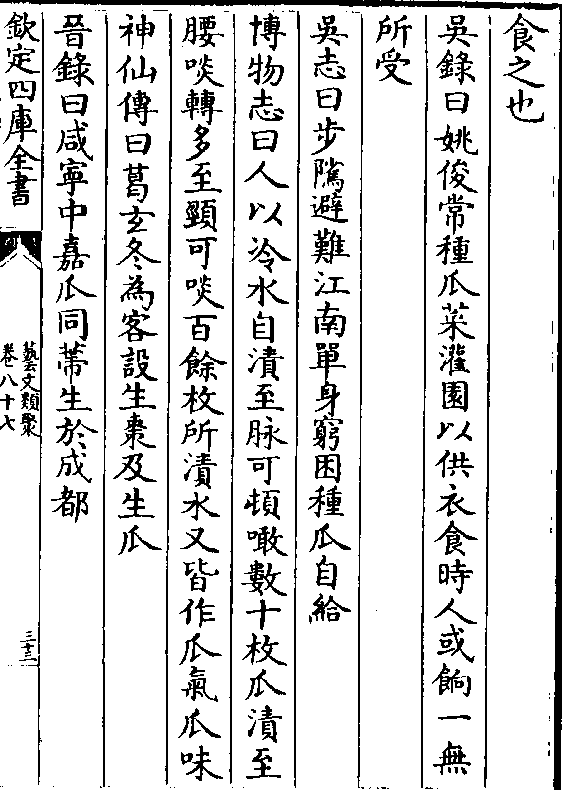 食之也
吳錄曰姚俊常種瓜菜灌園以供衣食時人或餉一無
所受
吳志曰步隲避難江南單身窮困種瓜自給
博物志曰人以冷水自漬至脉可頓噉數十枚瓜漬至
腰啖轉多至頸可啖百餘枚所漬水又皆作瓜氣瓜味
神仙傳曰葛玄冬為客設生棗及生瓜
晉錄曰咸寧中嘉瓜同蒂生於成都
欽定四庫全書
藝文類聚
卷八十七
三十三